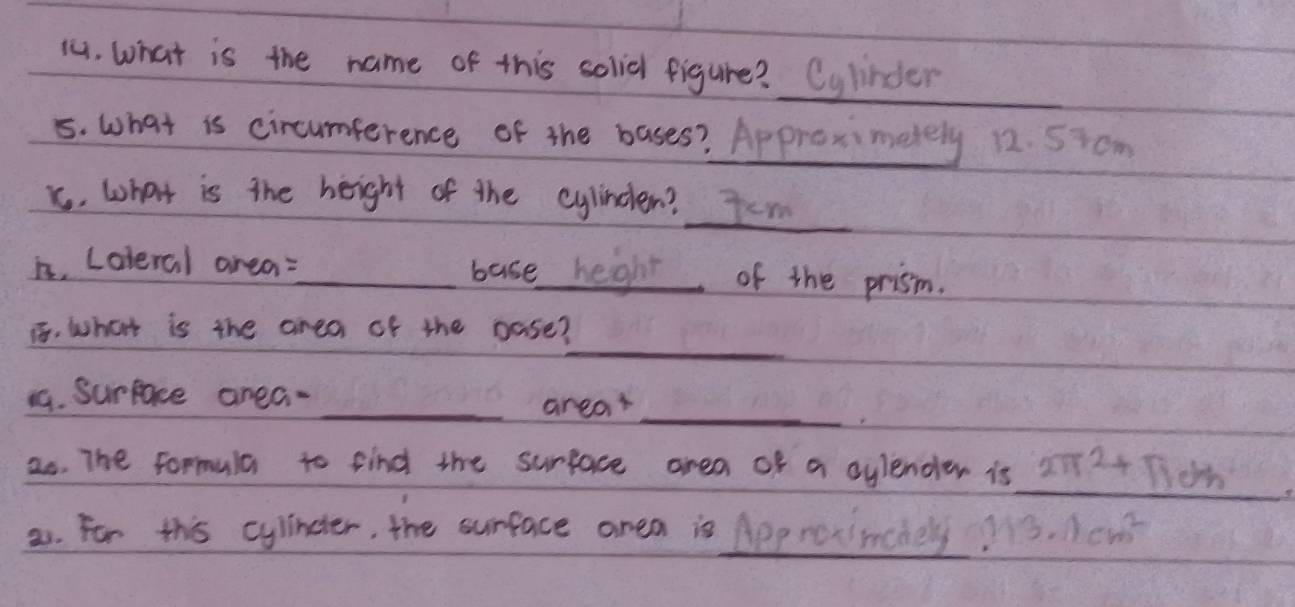 14. What is the name of this solid figure? Cylinder
15. What is circumference of the bases? Approximetely 12.57cm
16. What is the height of the cylinder? 7cm
17. Lateral area = ______ base height of the prism.
18. What is the area of the base? ______
19. Surface area = ______ area + ______.
20. The formula to find the surface area of a cylender is 2π²+
21. For this cylinder, the surface area is Approximately 113.1cm²